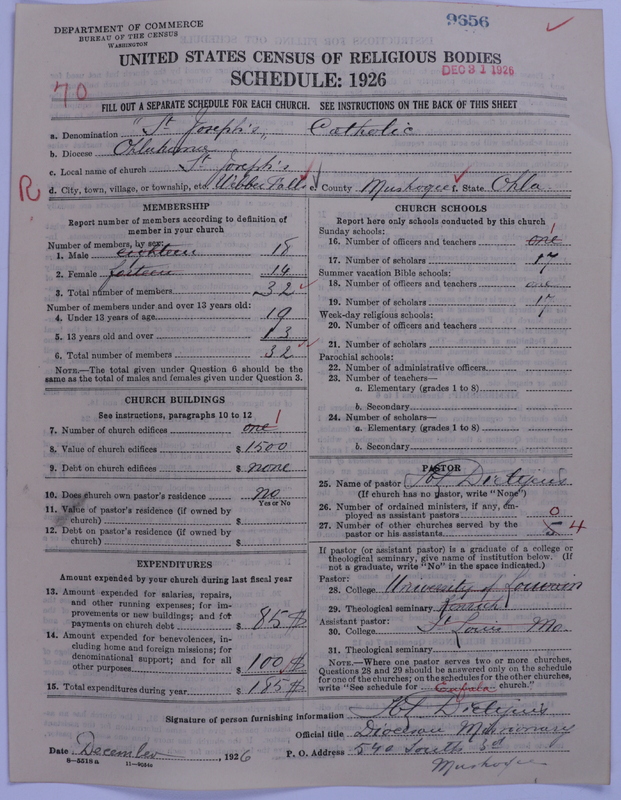 DEPARTMENT OF COMMERCE
BUREAU OF THE CENSUS
WASHINGTON
9656
UNITED STATES CENSUS OF RELIGIOUS BODIES
DEC 31 1926
SCHEDULE: 1926
70
FILL OUT A SEPARATE SCHEDULE FOR EACH CHURCH. SEE INSTRUCTIONS ON THE BACK OF THIS SHEET
a. Denomination "St. Joseph's" Catholic
b. Diocese Oklahoma
c. Local name of church St. Joseph's
R
d. City, town, village, or township, etc. Webber Falls e. County Muskogee f. State Okla.
MEMBERSHIP
Report number of members according to definition of member in your church
Number of members, by sex:
1. Male eighteen 18
2. Female forteen 14
3. Total number of members 32
Number of members under and over 13 years old:
4. Under 13 years of age 19
5. 13 years old and over 13
6. Total number of members 32
NOTE.—The total given under Question 6 should be the same as the total of males and females given under Question 3.
CHURCH BUILDINGS
See instructions, paragraphs 10 to 12
7. Number of church edifices one 1
8. Value of church edifices $ 1500
9. Debt on church edifices $ none
10. Does church own pastor's residence no
Yes or No
11. Value of pastor's residence (if owned by church) $
12. Debt on pastor's residence (if owned by church) $
EXPENDITURES
Amount expended by your church during last fiscal year
13. Amount expended for salaries, repairs, and other running expenses; for improvements or new buildings; and for payments on church debt $ 85 $
14. Amount expended for benevolences, including home and foreign missions; for denominational support; and for all other purposes $ 100 $
15. Total expenditures during year $ 185 $
CHURCH SCHOOLS
Report here only schools conducted by this church
Sunday schools:
16. Number of officers and teachers one 1
17. Number of scholars 17
Summer vacation Bible schools:
18. Number of officers and teachers one
19. Number of scholars 17
Week-day religious schools:
20. Number of officers and teachers
21. Number of scholars
Parochial schools:
22. Number of administrative officers
23. Number of teachers—
a. Elementary (grades 1 to 8)
b. Secondary
24. Number of scholars—
a. Elementary (grades 1 to 8)
b. Secondary
PASTOR
25. Name of pastor
(If church has no pastor, write "None")
26. Number of ordained ministers, if any, employed as assistant pastors 0
27. Number of other churches served by the pastor or his assistants 5 4
If pastor (or assistant pastor) is a graduate of a college or theological seminary, give name of institution below. (If not a graduate, write "No" in the space indicated.)
Pastor:
28. College University of
29. Theological seminary Kenrick
Assistant pastor:
30. College St. Louis Mo.
31. Theological seminary
NOTE.—Where one pastor serves two or more churches, Questions 28 and 29 should be answered only on the schedule for one of the churches; on the schedules for the other churches, write "See schedule for Eufala church."
Signature of person furnishing information
Official title Diocesan Missionary
Date December, 1926
P. O. Address 540 South 3d
Muskogee
8—5518 a